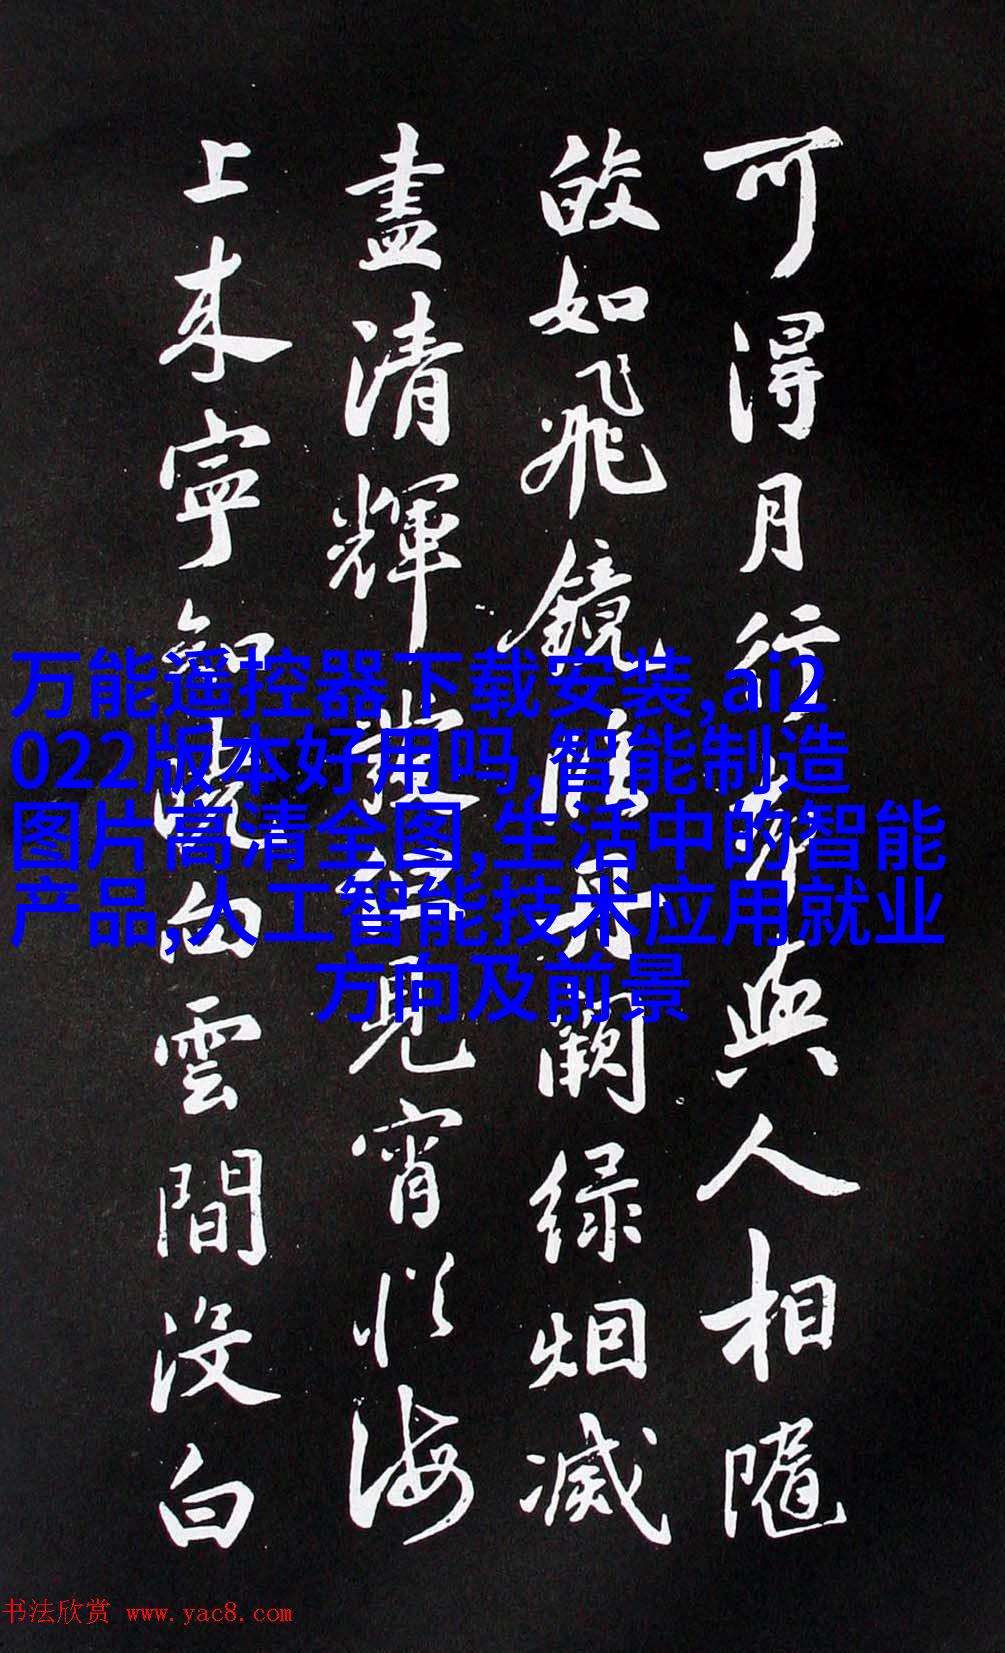 可得月行却與人相隨
皎如飛鏡臨丹闕緑烟滅
盡清輝發但見宵從海
上来寧知曉向雲間没白
万能遥控器下载安装,ai2
022版本好用吗,智能制造
图片高清全图,生活中的智能
产品,人工智能技术应用就业
方向及前景
书法欣赏 www.yac8.com